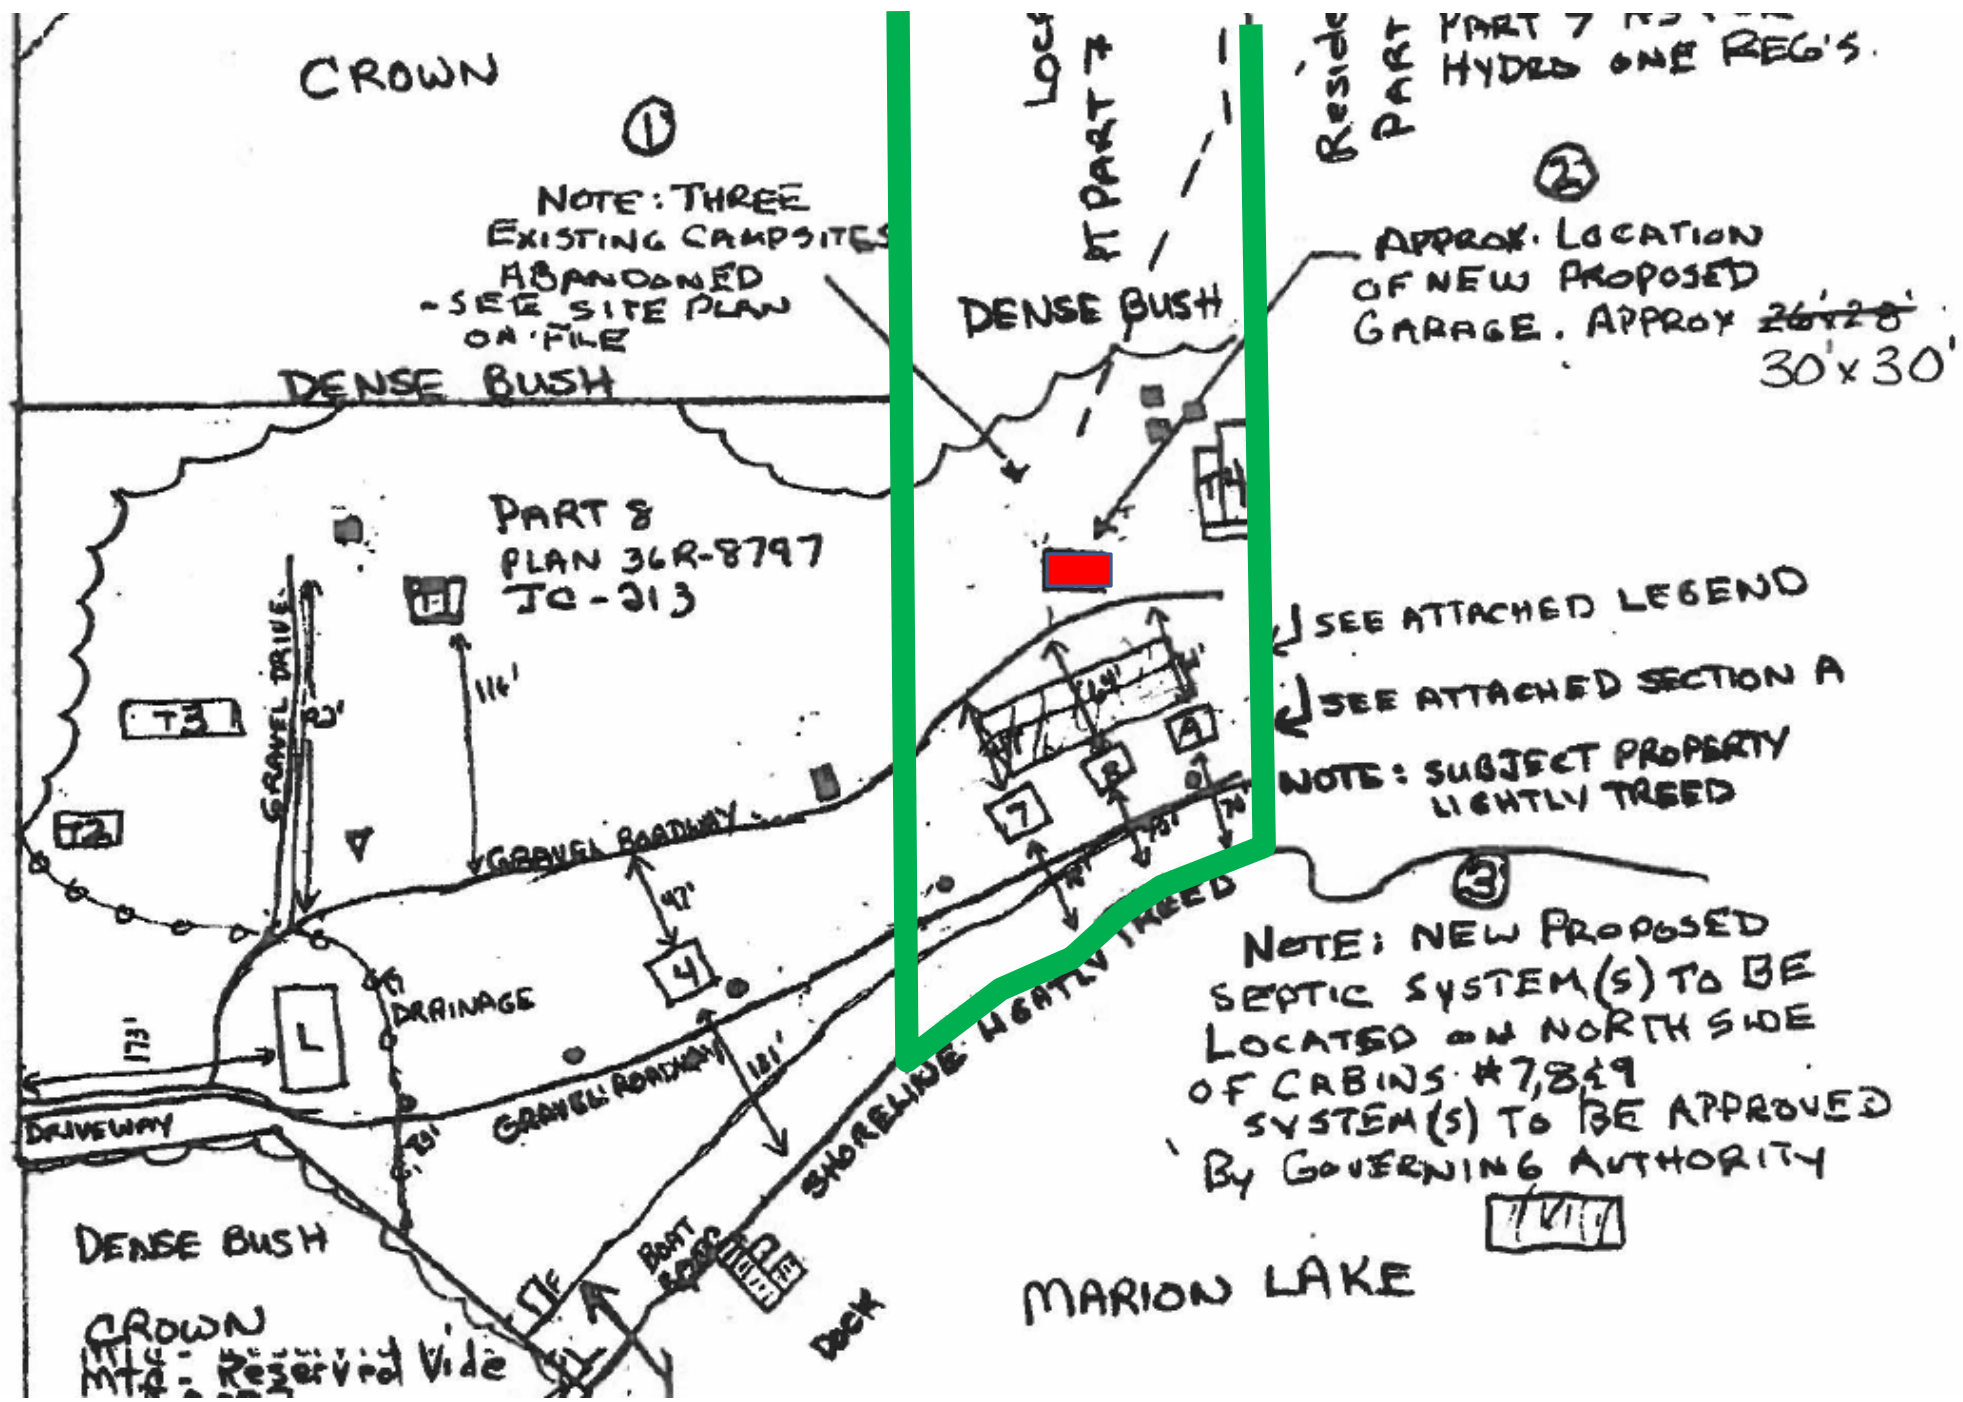 CROWN
①
NOTE: THREE
EXISTING CAMPSITES
ABANDONED
- SEE SITE PLAN
ON FILE
DENSE BUSH
PT PART 7
DENSE BUSH
PART
HYDRO ONE REG'S.
②
APPROX. LOCATION
OF NEW PROPOSED
GARAGE. APPROX 26'x28'
30'x30'
PART 8
PLAN 36R-8797
JC-213
GRAVEL DRIVE.
T3
T2
116'
GRAVEL ROADWAY
47'
4
L
DRAINAGE
173'
DRIVEWAY
GRAVEL ROADWAY
181'
64'
7
8
75'
SEE ATTACHED LEGEND
SEE ATTACHED SECTION A
NOTE: SUBJECT PROPERTY
LIGHTLY TREED
③
NOTE: NEW PROPOSED
SEPTIC SYSTEM(S) TO BE
LOCATED ON NORTH SIDE
OF CABINS #7,8&9
SYSTEM(S) TO BE APPROVED
BY GOVERNING AUTHORITY
SHORELINE LIGHTLY TREED
DENSE BUSH
CROWN
Reserved Vide
BOAT
F
DOCK
MARION LAKE